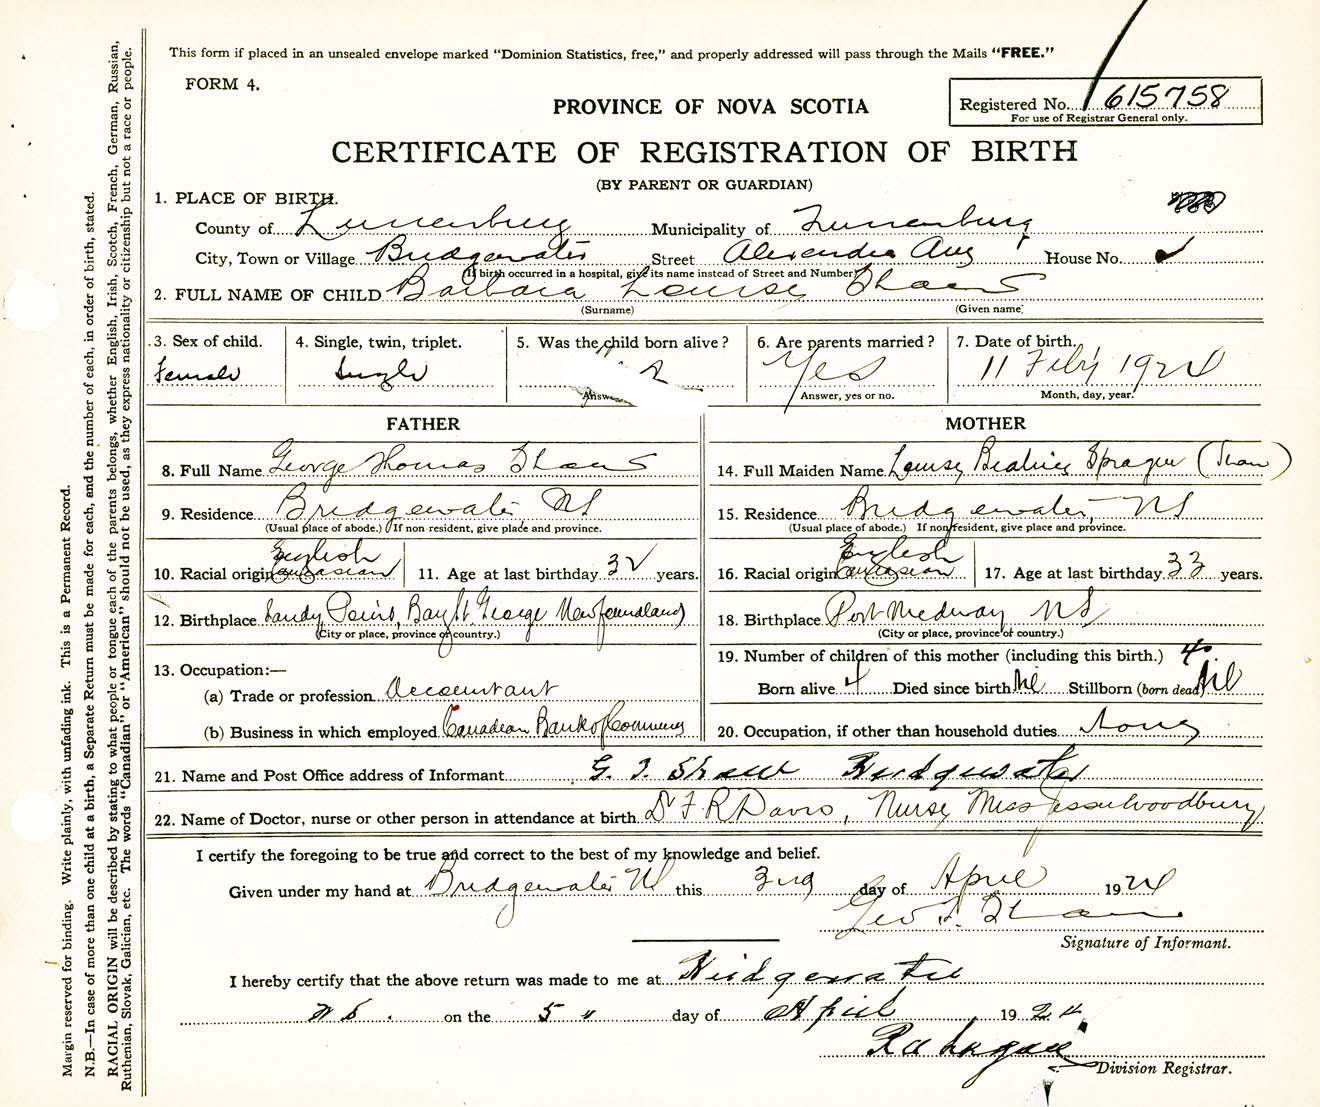 This form if placed in an unsealed envelope marked "Dominion Statistics, free," and properly addressed will pass through the Mails "FREE."
FORM 4.
PROVINCE OF NOVA SCOTIA
Registered No. 615758
For use of Registrar General only.
CERTIFICATE OF REGISTRATION OF BIRTH
(BY PARENT OR GUARDIAN)
1. PLACE OF BIRTH.
County of Lunenburg Municipality of Lunenburg
City, Town or Village Bridgewater Street Alexandra Ave House No.
(If birth occurred in a hospital, give its name instead of Street and Number)
2. FULL NAME OF CHILD Barbara Louise Shaw
(Surname) (Given name)
3. Sex of child. 4. Single, twin, triplet. 5. Was the child born alive? 6. Are parents married? 7. Date of birth.
Female Single Yes 11 Feby 1924
Answer, yes or no. Month, day, year.
FATHER MOTHER
8. Full Name George Thomas Shaw 14. Full Maiden Name Louise Beatrice (Shaw)
9. Residence Bridgewater NS 15. Residence Bridgewater, NS
(Usual place of abode.) (If non-resident, give place and province. (Usual place of abode.) If non-resident, give place and province.
English English
10. Racial origin Caucasian 11. Age at last birthday 32 years. 16. Racial origin Caucasian 17. Age at last birthday 33 years.
12. Birthplace Sandy Point, Bay St. George Newfoundland 18. Birthplace Port Medway NS
(City or place, province or country.) (City or place, province or country.)
13. Occupation:—
(a) Trade or profession Accountant
(b) Business in which employed Canadian Bank of Commerce
19. Number of children of this mother (including this birth.) 4
Born alive 4 Died since birth Nil Stillborn (born dead) Nil
20. Occupation, if other than household duties None
21. Name and Post Office address of Informant G. T. Shaw Bridgewater
22. Name of Doctor, nurse or other person in attendance at birth Dr F R Davis, Nurse Miss Jessie Woodbury
I certify the foregoing to be true and correct to the best of my knowledge and belief.
Given under my hand at Bridgewater NS this 3rd day of April 1924
Geo T. Shaw
Signature of Informant.
I hereby certify that the above return was made to me at Bridgewater
N S. on the 5 " day of April 1924
Division Registrar.
Margin reserved for binding. Write plainly, with unfading ink. This is a Permanent Record.
N.B.—In case of more than one child at a birth, a Separate Return must be made for each, and the number of each, in order of birth, stated.
RACIAL ORIGIN will be described by stating to what people or tongue each of the parents belongs, whether English, Irish, Scotch, French, German, Russian,
Ruthenian, Slovak, Galician, etc. The words "Canadian" or "American" should not be used, as they express nationality or citizenship but not a race or people.